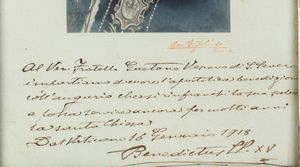 Al Ven. Fratello Gaetano Vescovo di S. Severo
impartiamo di cuore l'apostolica benedizione
coll'augurio che si rinfranchi la sua salute
e possa servire ancora per molti anni
la santa Chiesa
Dal Vaticano 16 Gennaio 1918
Benedictus PP. XV